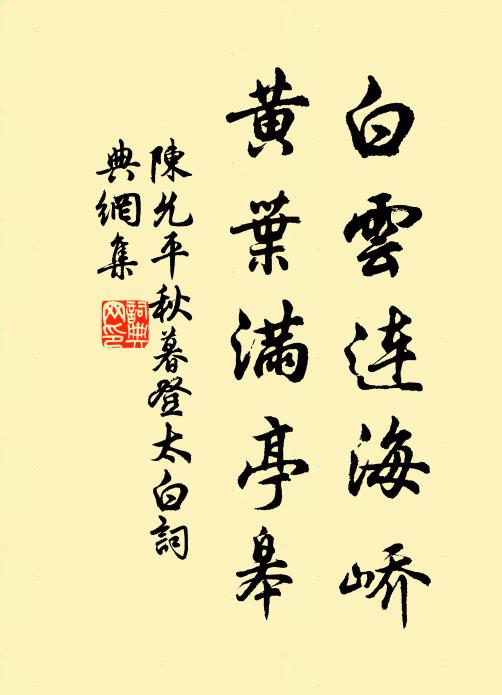 白雲連海嶠
黃葉滿亭皋
陳允平秋暮登太白詞
典網集
詞典網印